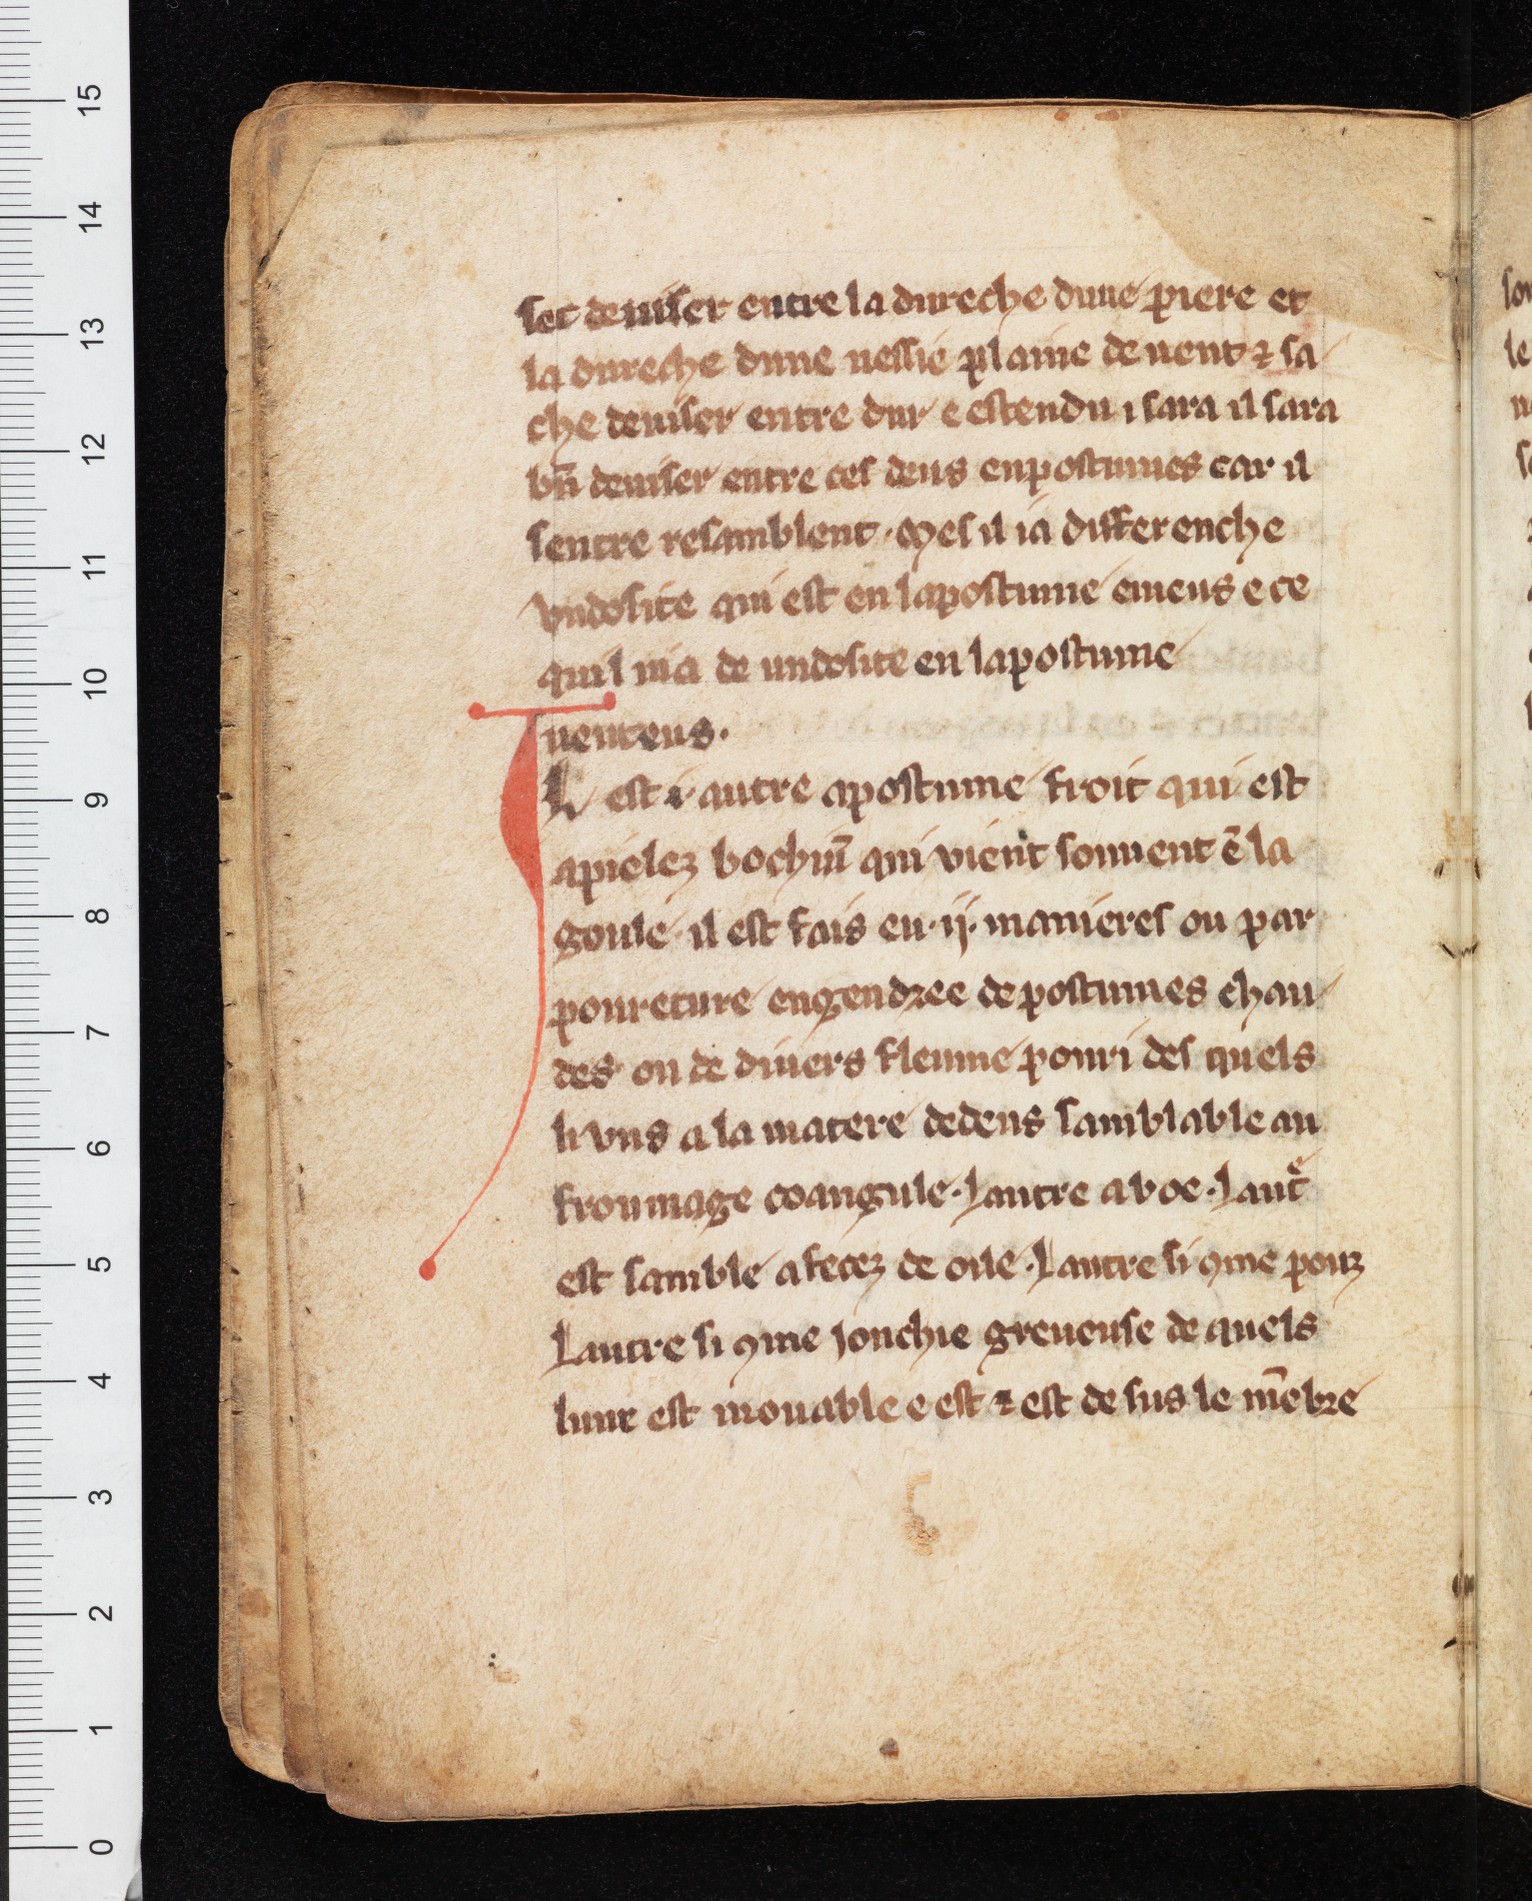 set deuiser entre la dureche dune piere et
la dureche dune uessie plaine de uent ⁊ sa
che deuiser entre dur e estendu i sara il sara
bn̄ deuiser entre ces deus enpostumes car il
sentre resamblent · Mes il ia differenche
vndosite qui est en lapostume emeus e ce
quil nia de undosite en lapostume
uenteus ·
IL est · i · autre apostume froit qui est
apielez bochiū qui vient souuent ē la
goule il est fais en · ij · manieres ou par
poureture engendree de postumes chau
des ou de diuers fleume pouri des quels
li vns a la matere dedens samblable au
froumage coangule · Lautre a boe · Laut̄e
est samble a fecez de oile · Lautre si ꝯme pouz
Lautre si ꝯme jonchie greueuse de quels
lune est mouable e est ⁊ est de sus le m̄ebre
15
14
13
12
11
10
9
8
7
6
5
4
3
2
1
0